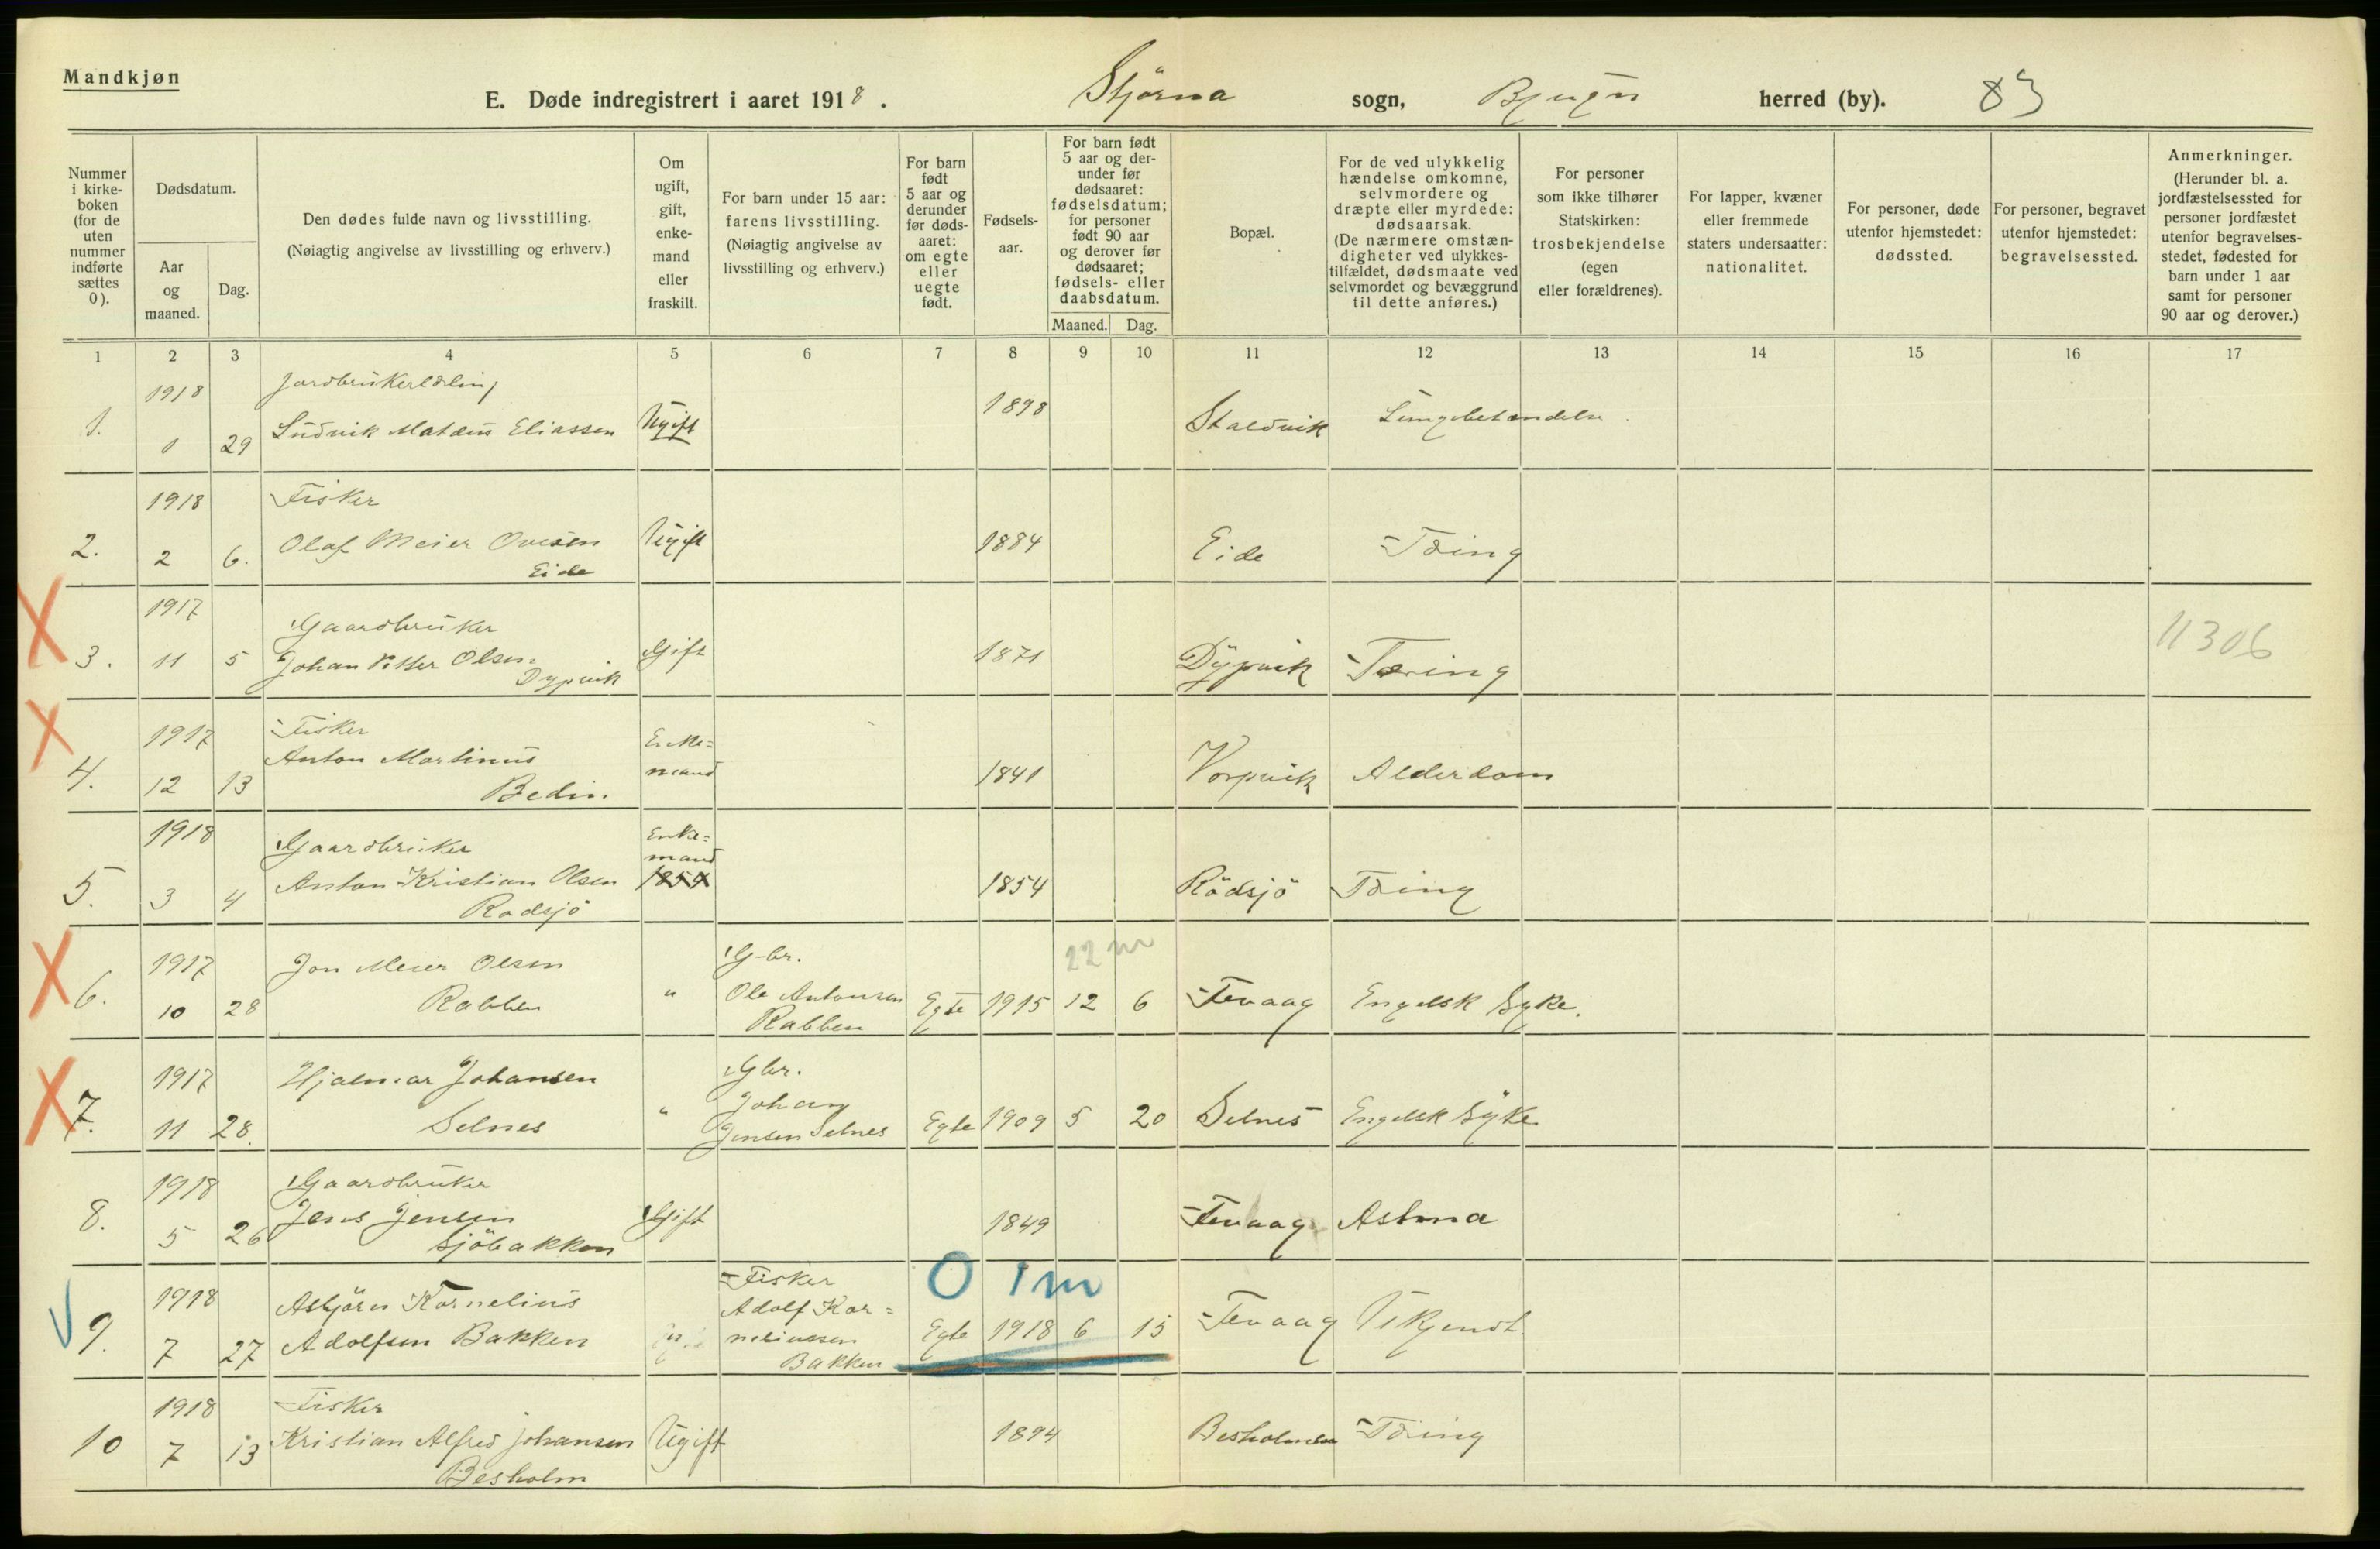 Mandkjøn
E. Døde indregistrert i aaret 1918. Stjørna sogn, Bjugn herred (by). 83
Nummer i kirke-boken (for de uten nummer indførte sættes 0).
Dødsdatum.
Aar og maaned.
Dag.
Den dødes fulde navn og livsstilling.
(Nøiagtig angivelse av livsstilling og erhverv.)
Om ugift, gift, enke-mand eller fraskilt.
For barn under 15 aar: farens livsstilling.
(Nøiagtig angivelse av livsstilling og erhverv.)
For barn født 5 aar og derunder før døds-aaret: om egte eller uegte født.
Fødsels-aar.
For barn født 5 aar og der-under før dødsaaret: fødselsdatum; for personer født 90 aar og derover før dødsaaret; fødsels- eller daabsdatum.
Maaned. Dag.
Bopæl.
For de ved ulykkelig hændelse omkomne, selvmordere og dræpte eller myrdede: dødsaarsak.
(De nærmere omstæn-digheter ved ulykkes-tilfældet, dødsmaate ved selvmordet og bevæggrund til dette anføres.)
For personer som ikke tilhører Statskirken: trosbekjendelse (egen eller forældrenes).
For lapper, kvæner eller fremmede staters undersaatter: nationalitet.
For personer, døde utenfor hjemstedet: dødssted.
For personer, begravet utenfor hjemstedet: begravelsessted.
Anmerkninger.
(Herunder bl. a. jordfæstelsessted for personer jordfæstet utenfor begravelses-stedet, fødested for barn under 1 aar samt for personer 90 aar og derover.)
1 2 3 4 5 6 7 8 9 10 11 12 13 14 15 16 17
1918 Jordbruker
1. 1 29 Ludvik Matæus Eliassen Ugift 1898 Staldvik Lungebetændelse
1918 Fisker
2. 2 6. Olaf Meier Ovesen Ugift 1884 Eide Tæring
Eide
1917 Gaardbruker
3. 11 5 Johan Petter Olsen Gift 1871 Dypvik Tæring 11306
Dypvik
1917 Fisker Enke=
4. 12 13 Anton Martinus mand 1841 Vorpvik Alderdom
Bedin
1918 Gaardbruker Enke=mand
5. 3 4 Anton Kristian Olsen 1854 1854 Rödsjö Tæring
Rödsjö
1917 Jon Meier Olsen G-br. 22 m
6. 10 28 Rabben " Ole Antonsen Egte 1915 12 6 Tevaag Engelsk Syke.
Rabben
1917 Hjalmar Johansen Gbr.
7. 11 28. Selnes " Johan Egte 1909 5 20 Selnes Engelsk Syke
Jensen Selnes
1918 Gaardbruker
8. 5 26 Jens Jensen Gift 1849 Tevaag Astma
Sjöbakken
1918 Asbjörn Kornelius Fisker 0 1m
9. 7 27 Adolfsen Bakken Adolf Kor= Egte 1918 6 15 Tevaag Ukjendt
neliussen
Bakken
1918 Fisker
10 7 13 Kristian Alfred Johansen Ugift 1894 Besholmen Tæring
Besholm